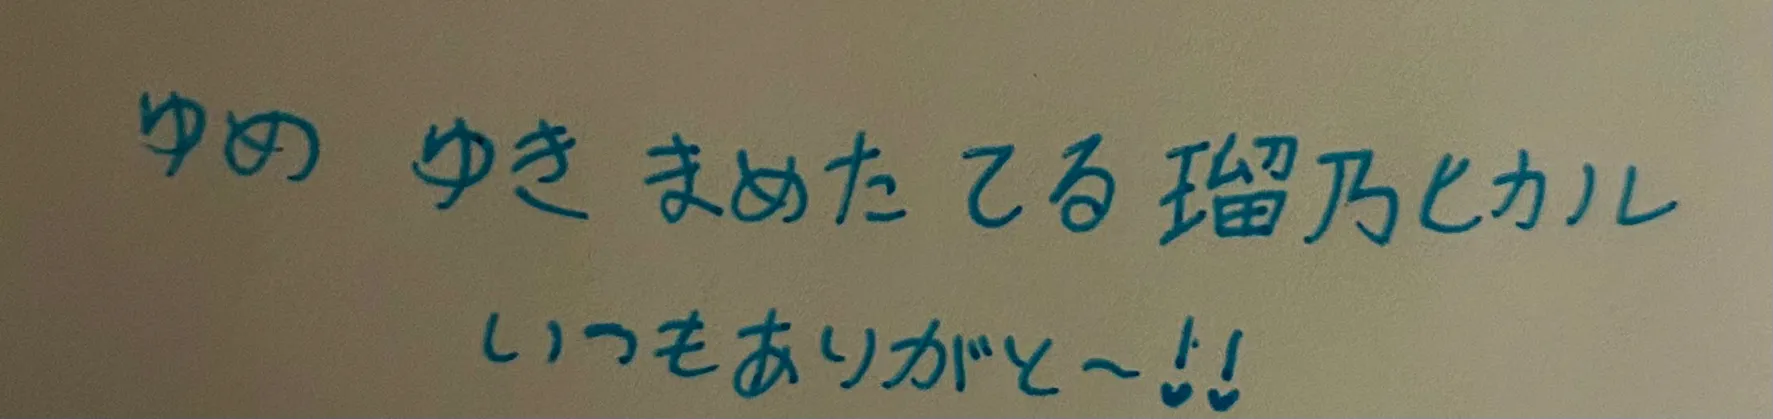 ゆめ ゆき まめた てる 瑠乃ヒカル
いつもありがと〜!!